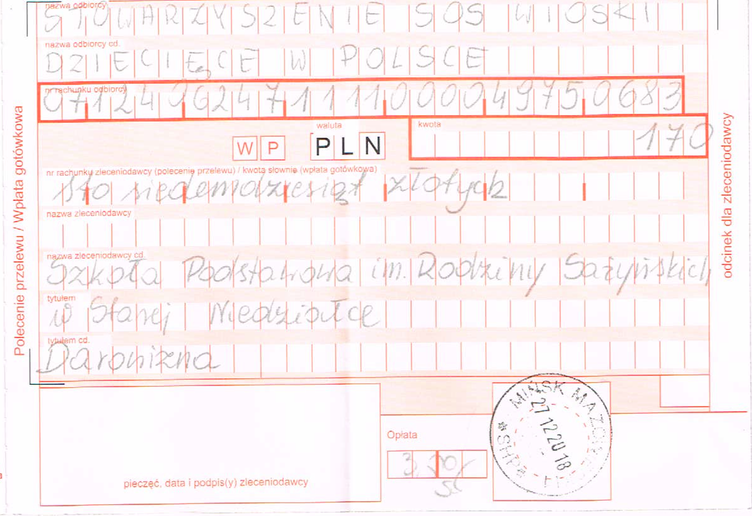 nazwa odbiorcy
STOWARZYSZENIE SOS WIOSKI
nazwa odbiorcy cd.
DZIECIĘCE W POLSCE
nr rachunku odbiorcy
07124062471111000049750683
waluta
kwota
WP PLN 170
nr rachunku zleceniodawcy (polecenie przelewu) / kwota słownie (wpłata gotówkowa)
sto siedemdziesiąt złotych
nazwa zleceniodawcy
nazwa zleceniodawcy cd.
Szkoła Podstawowa im. Rodziny Sażyńskich
tytułem
w Starej Niedziałce
tytułem cd.
Darowizna
Polecenie przelewu / Wpłata gotówkowa
odcinek dla zleceniodawcy
pieczęć, data i podpis(y) zleceniodawcy
Opłata
3
MIŃSK
27 12 2018